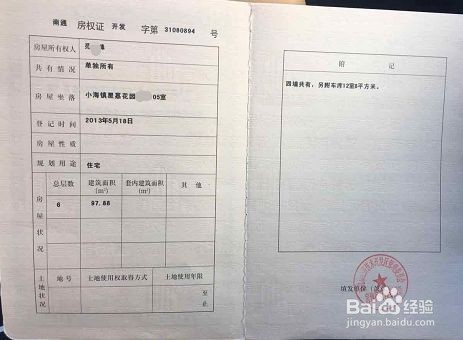 南通 房权证 开发 字第 31080894 号
房屋所有权人
共有情况 单独所有
房屋坐落 小海镇星嘉花园 05室
登记时间 2013年5月18日
房屋性质
规划用途 住宅
房屋状况 总层数 建筑面积(m²) 套内建筑面积(m²) 其他
6 97.88
土地状况 地号 土地使用权取得方式 土地使用年限
至
止
附记
四墙共有，另附车库12室8平方米。
填发单位
Baidu经验
jingyan.baidu.com